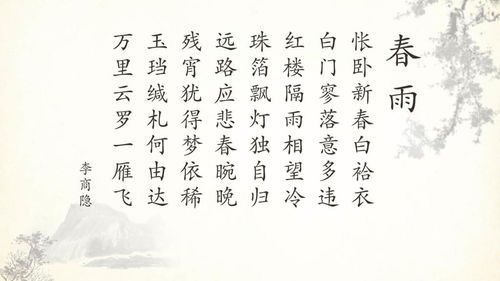 春雨
怅卧新春白袷衣
白门寥落意多违
红楼隔雨相望冷
珠箔飘灯独自归
远路应悲春晼晚
残宵犹得梦依稀
玉珰缄札何由达
万里云罗一雁飞
李商隐